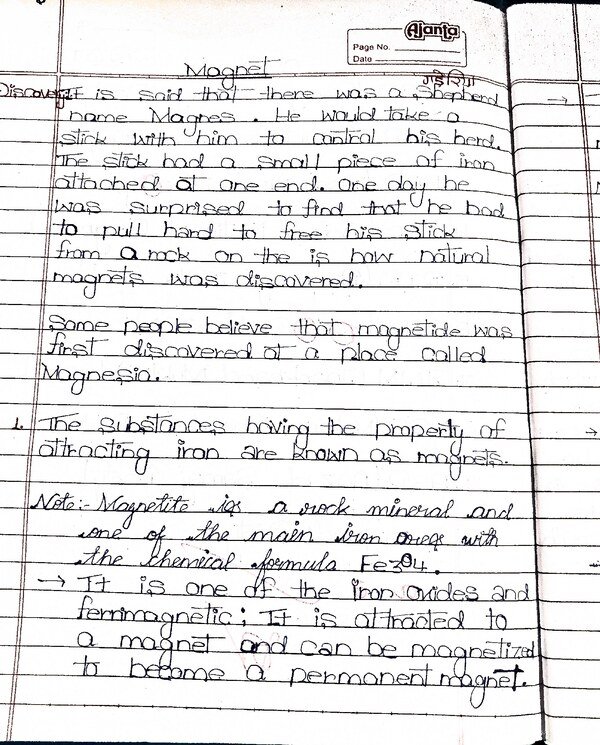 Ajanta
Page No.
Date
Magnet
गडेरिया
Discovery It is said that there was a Shepherd
name Magnes. He would take a
stick with him to control his herd.
The stick had a small piece of iron
attached at one end. One day he
was surprised to find that he had
to pull hard to free his stick
from a rock on the is how natural
magnets was discovered.
Some people believe that magnetide was
first discovered at a place called
Magnesia.
1. The substances having the property of
attracting iron are known as magnets.
Note:- Magnetite is a rock mineral and
one of the main iron ores with
the chemical formula Fe3O4.
→ It is one of the iron oxides and
ferrimagnetic; It is attracted to
a magnet and can be magnetized
to become a permanent magnet.